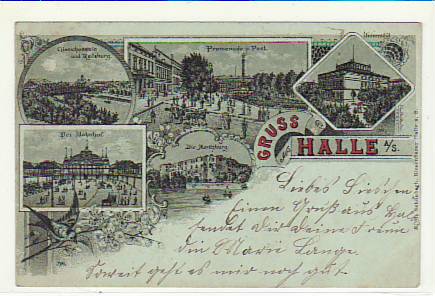 Giebichenstein
und Reilsburg.
Promenade u. Post.
Universität
Der Bahnhof.
Die Moritzburg.
GRUSS
HALLE A/S.
Liebes
Einen Gruß aus Hal
sendet dir deine
die Marie Lange.
Soweit geht es mir noch gut.